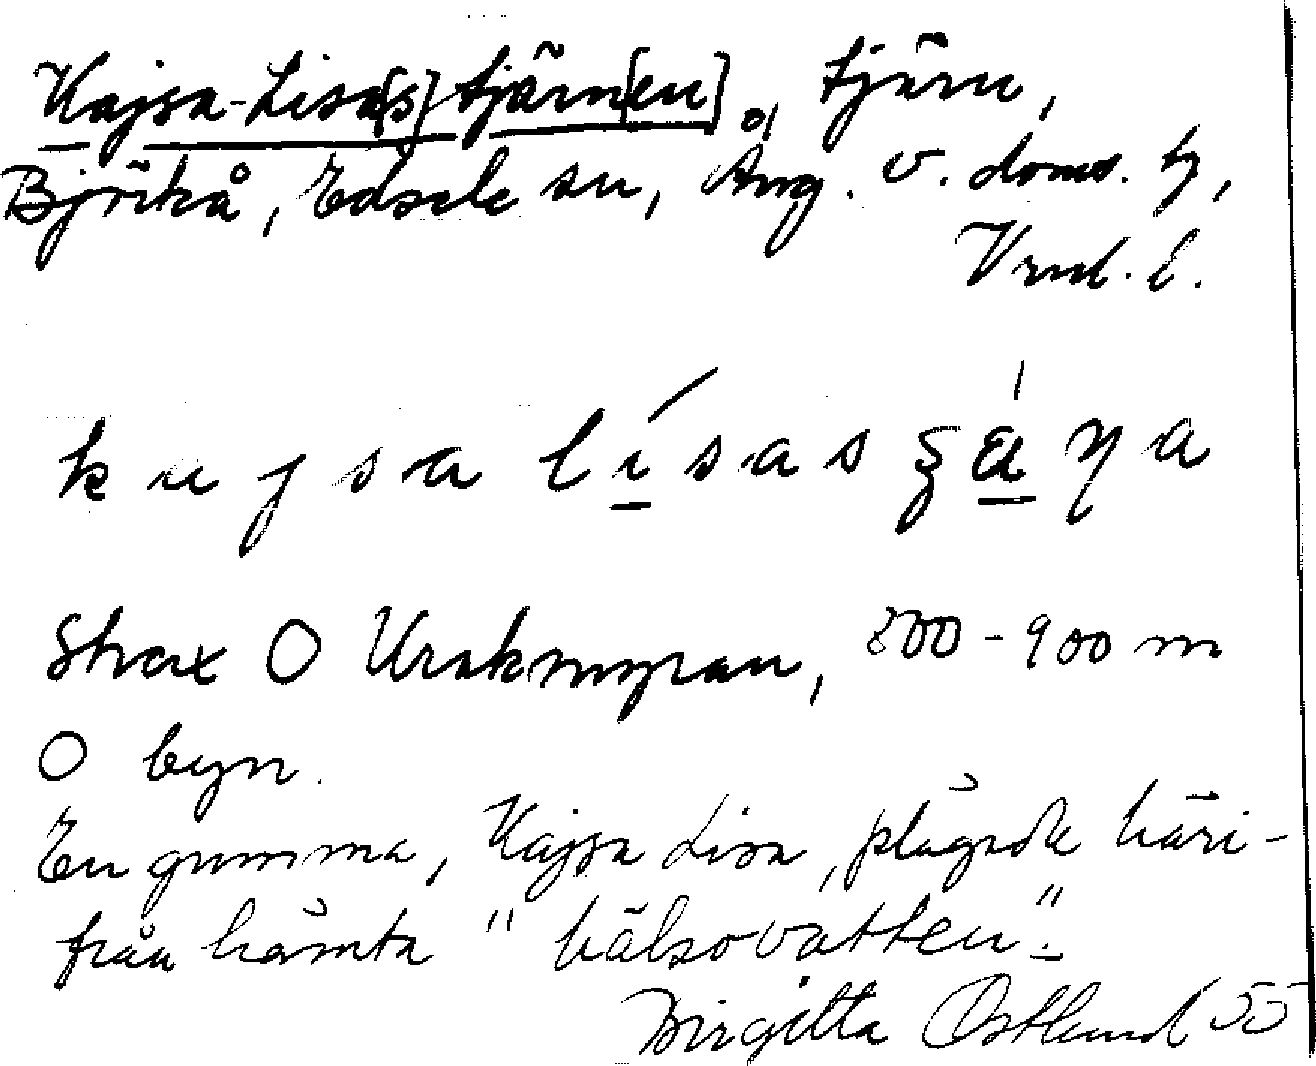 Kajsa-Lisa[s]tjärn[en], tjärn,
Björkå, Edsele sn, Ång. v. doms. tg,
Vrml. E.
kajsa lísas ʂä́ɳa
Strax O Urakmyran, 800-900 m
O byn.
En gumma, Kajsa Lisa, plägade häri-
från hämta "hälsovatten".
Birgitta Östlund 55